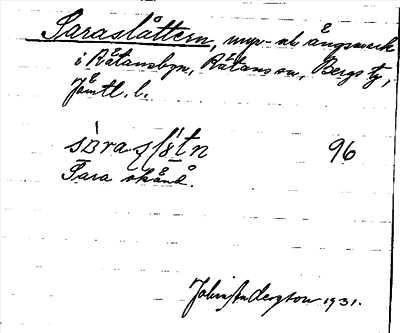 Saraslåttern, myr- och ängsmark
i Råtansbyn, Råtans sn, Bergs tg,
Jämtl. l.
96
Sara skånl.
John Andersson 1931.